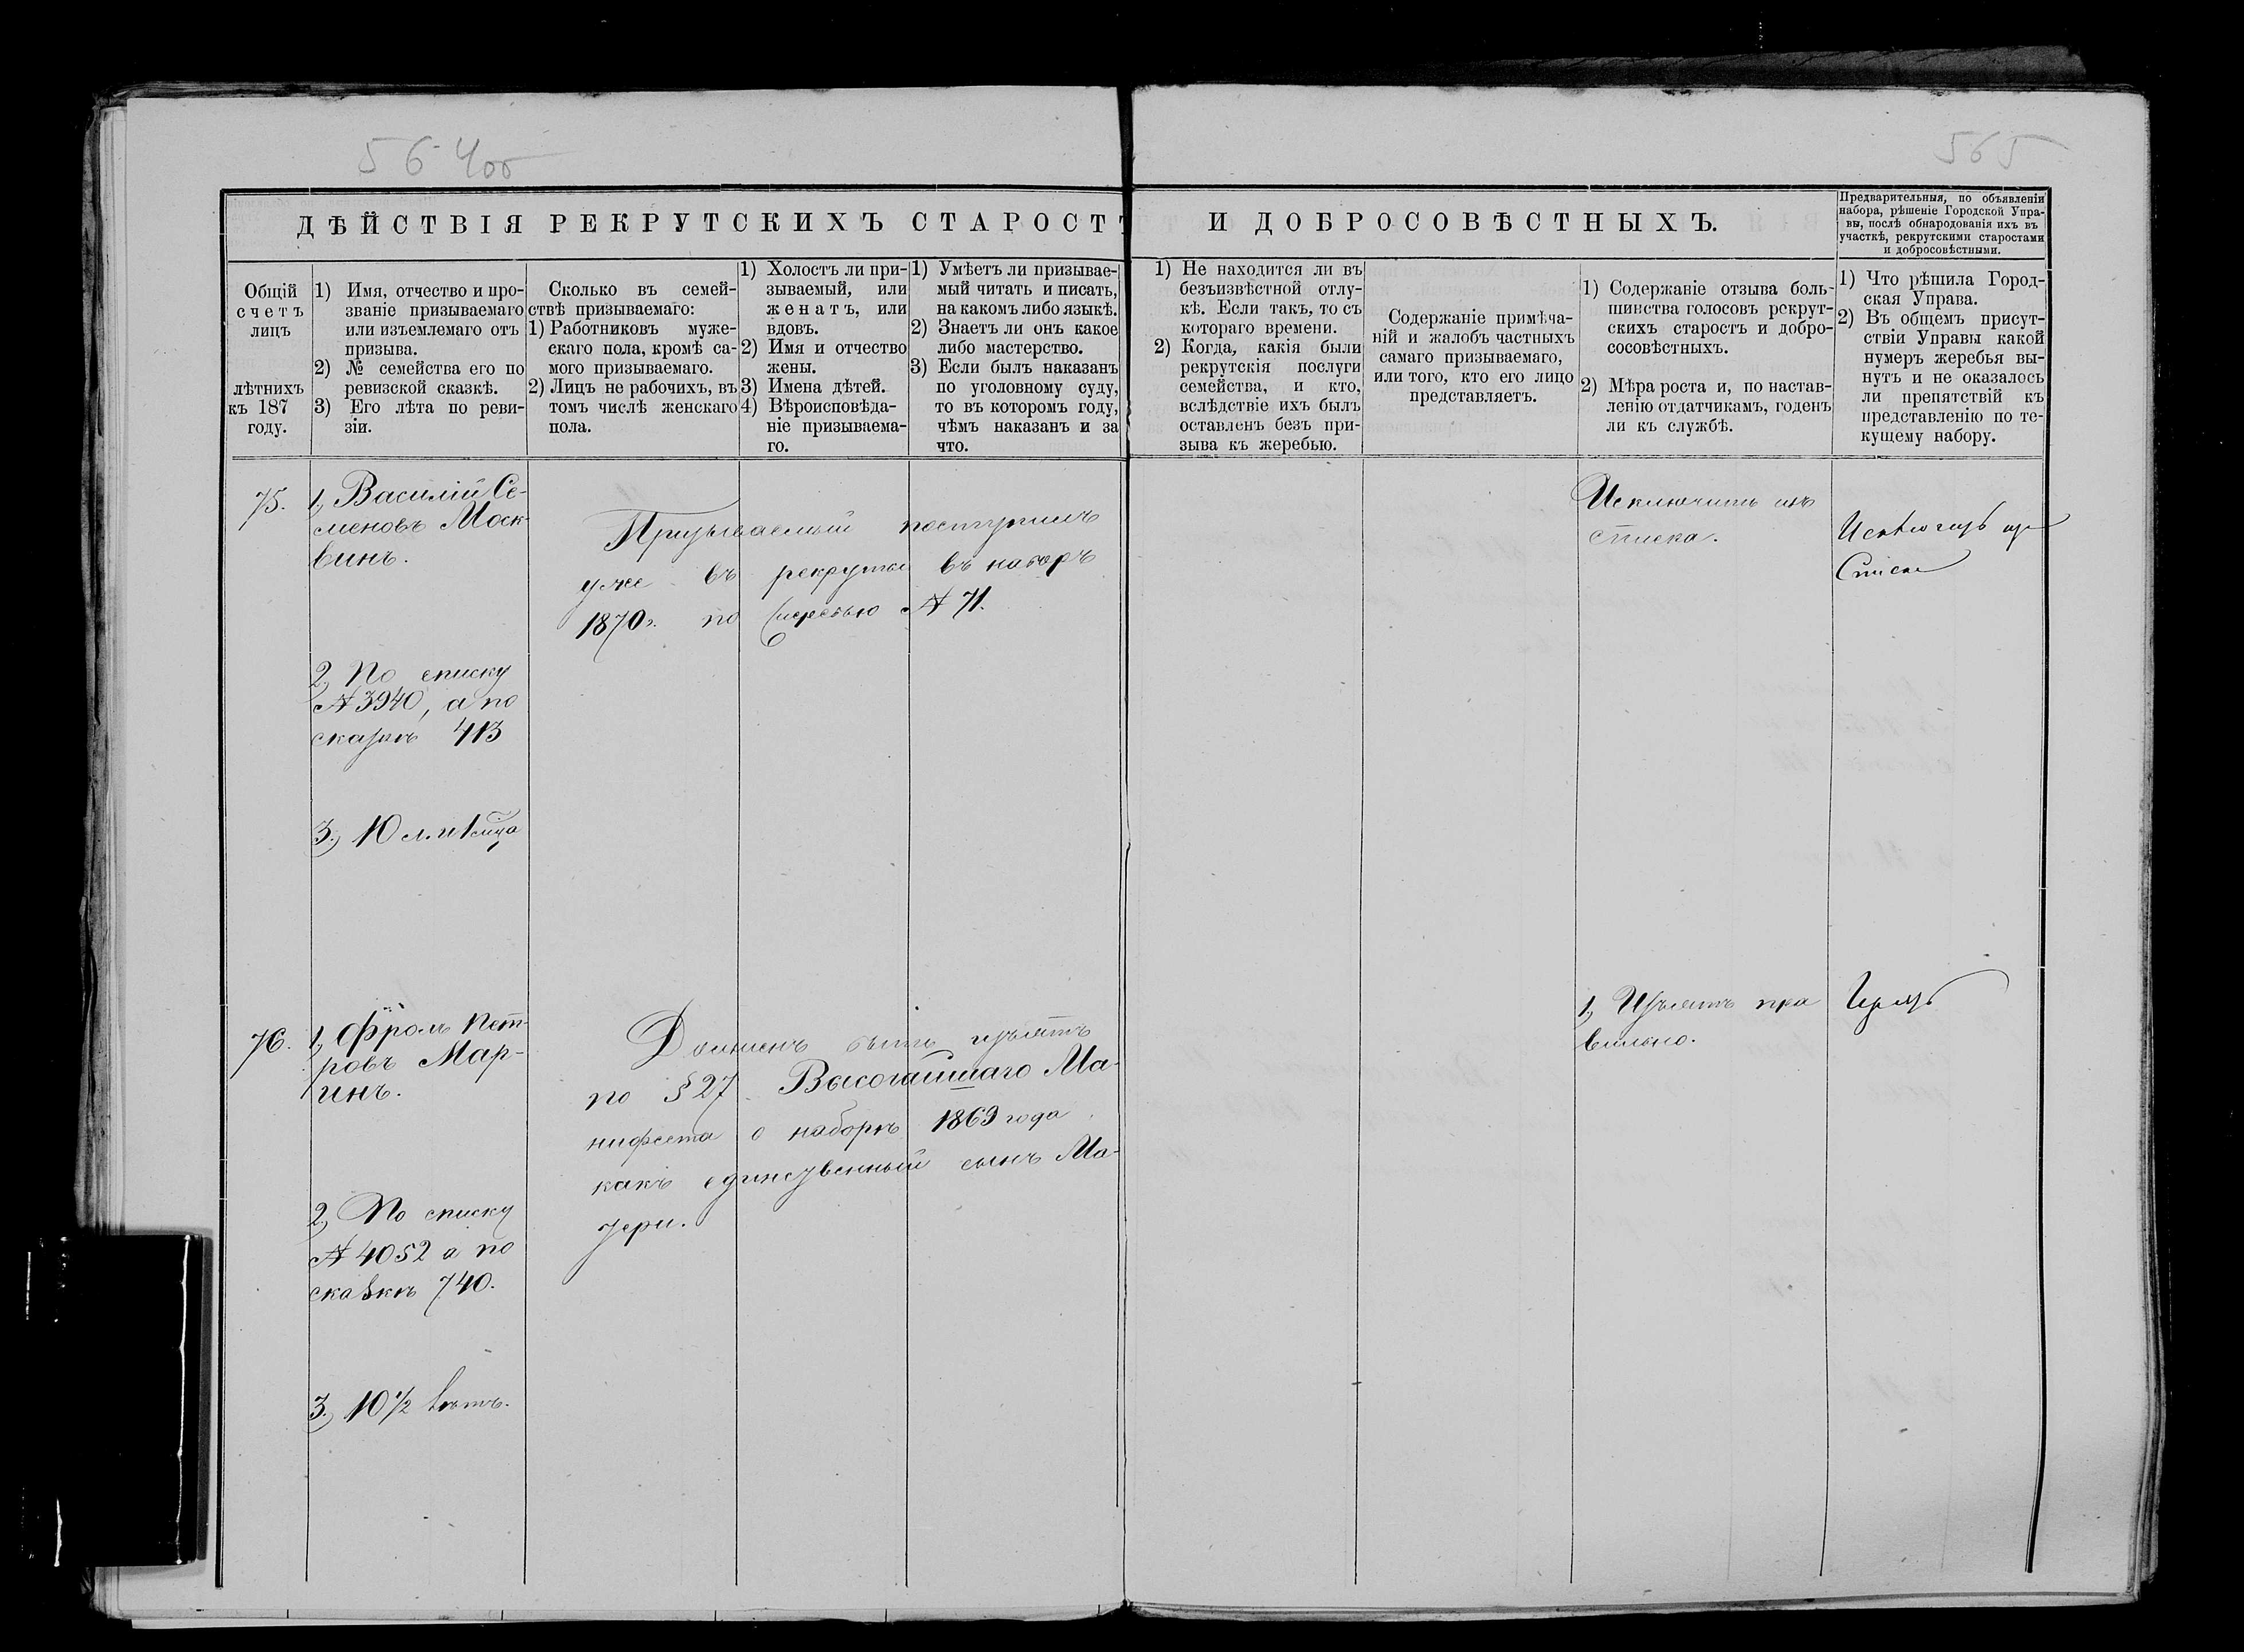 564об
565
ДѢЙСТВІЯ РЕКРУТСКИХЪ СТАРОСТЪ И ДОБРОСОВѢСТНЫХЪ.
Предварительныя, по объявленіи
набора, рѣшеніе Городской Упра-
вы, послѣ обнародованія ихъ въ
участкѣ, рекрутскими старостами
и добросовѣстными.
Общій
счетъ
лицъ
лѣтнихъ
къ 187
году.
1) Имя, отчество и про-
званіе призываемаго
или изъемлемаго отъ
призыва.
2) № семейства его по
ревизской сказкѣ.
3) Его лѣта по реви-
зіи.
Сколько въ семей-
ствѣ призываемаго:
1) Работниковъ муже-
скаго пола, кромѣ са-
мого призываемаго.
2) Лицъ не рабочихъ, въ
томъ числѣ женскаго
пола.
1) Холостъ ли при-
зываемый, или
женатъ, или
вдовъ.
2) Имя и отчество
жены.
3) Имена дѣтей.
4) Вѣроисповѣда-
ніе призываема-
го.
1) Умѣетъ ли призывае-
мый читать и писать,
на какомъ либо языкѣ.
2) Знаетъ ли онъ какое
либо мастерство.
3) Если былъ наказанъ
по уголовному суду,
то въ которомъ году,
чѣмъ наказанъ и за
что.
1) Не находится ли въ
безъизвѣстной отлу-
кѣ. Если такъ, то съ
котораго времени.
2) Когда, какія были
рекрутскія послуги
семейства, и кто,
вслѣдствіе ихъ былъ
оставленъ безъ при-
зыва къ жеребью.
Содержаніе примѣча-
ній и жалобъ частныхъ
самаго призываемаго,
или того, кто его лицо
представляетъ.
1) Содержаніе отзыва боль-
шинства голосовъ рекрут-
скихъ старостъ и добро-
сосовѣстныхъ.
2) Мѣра роста и, по настав-
ленію отдатчикамъ, годенъ
ли къ службѣ.
1) Что рѣшила Город-
ская Управа.
2) Въ общемъ присут-
ствіи Управы какой
нумеръ жеребья вы-
нутъ и не оказалось
ли препятствій къ
представленію по те-
кущему набору.
75.
1, Василій Се-
меновъ Моск-
винъ.
2, По списку
№ 3940, а по
сказкѣ 413
3., 10 л. и 1 мца
Призываемый поступилъ
уже въ рекруты въ наборъ
1870г. по жеребью № 71.
Исключить изъ
списка.
Исключить из
Списка
76.
1, Фролъ Пет-
ровъ Мар-
инъ.
2, По списку
№ 4052 а по
сказкѣ 740.
3., 10 1/2 лѣтъ.
Долженъ быть изъятъ
по § 27 Высочайшаго Ма-
нифеста о наборѣ 1869 года
какъ единственный сынъ Ма-
тери.
1, Изъятъ пра
вильно.